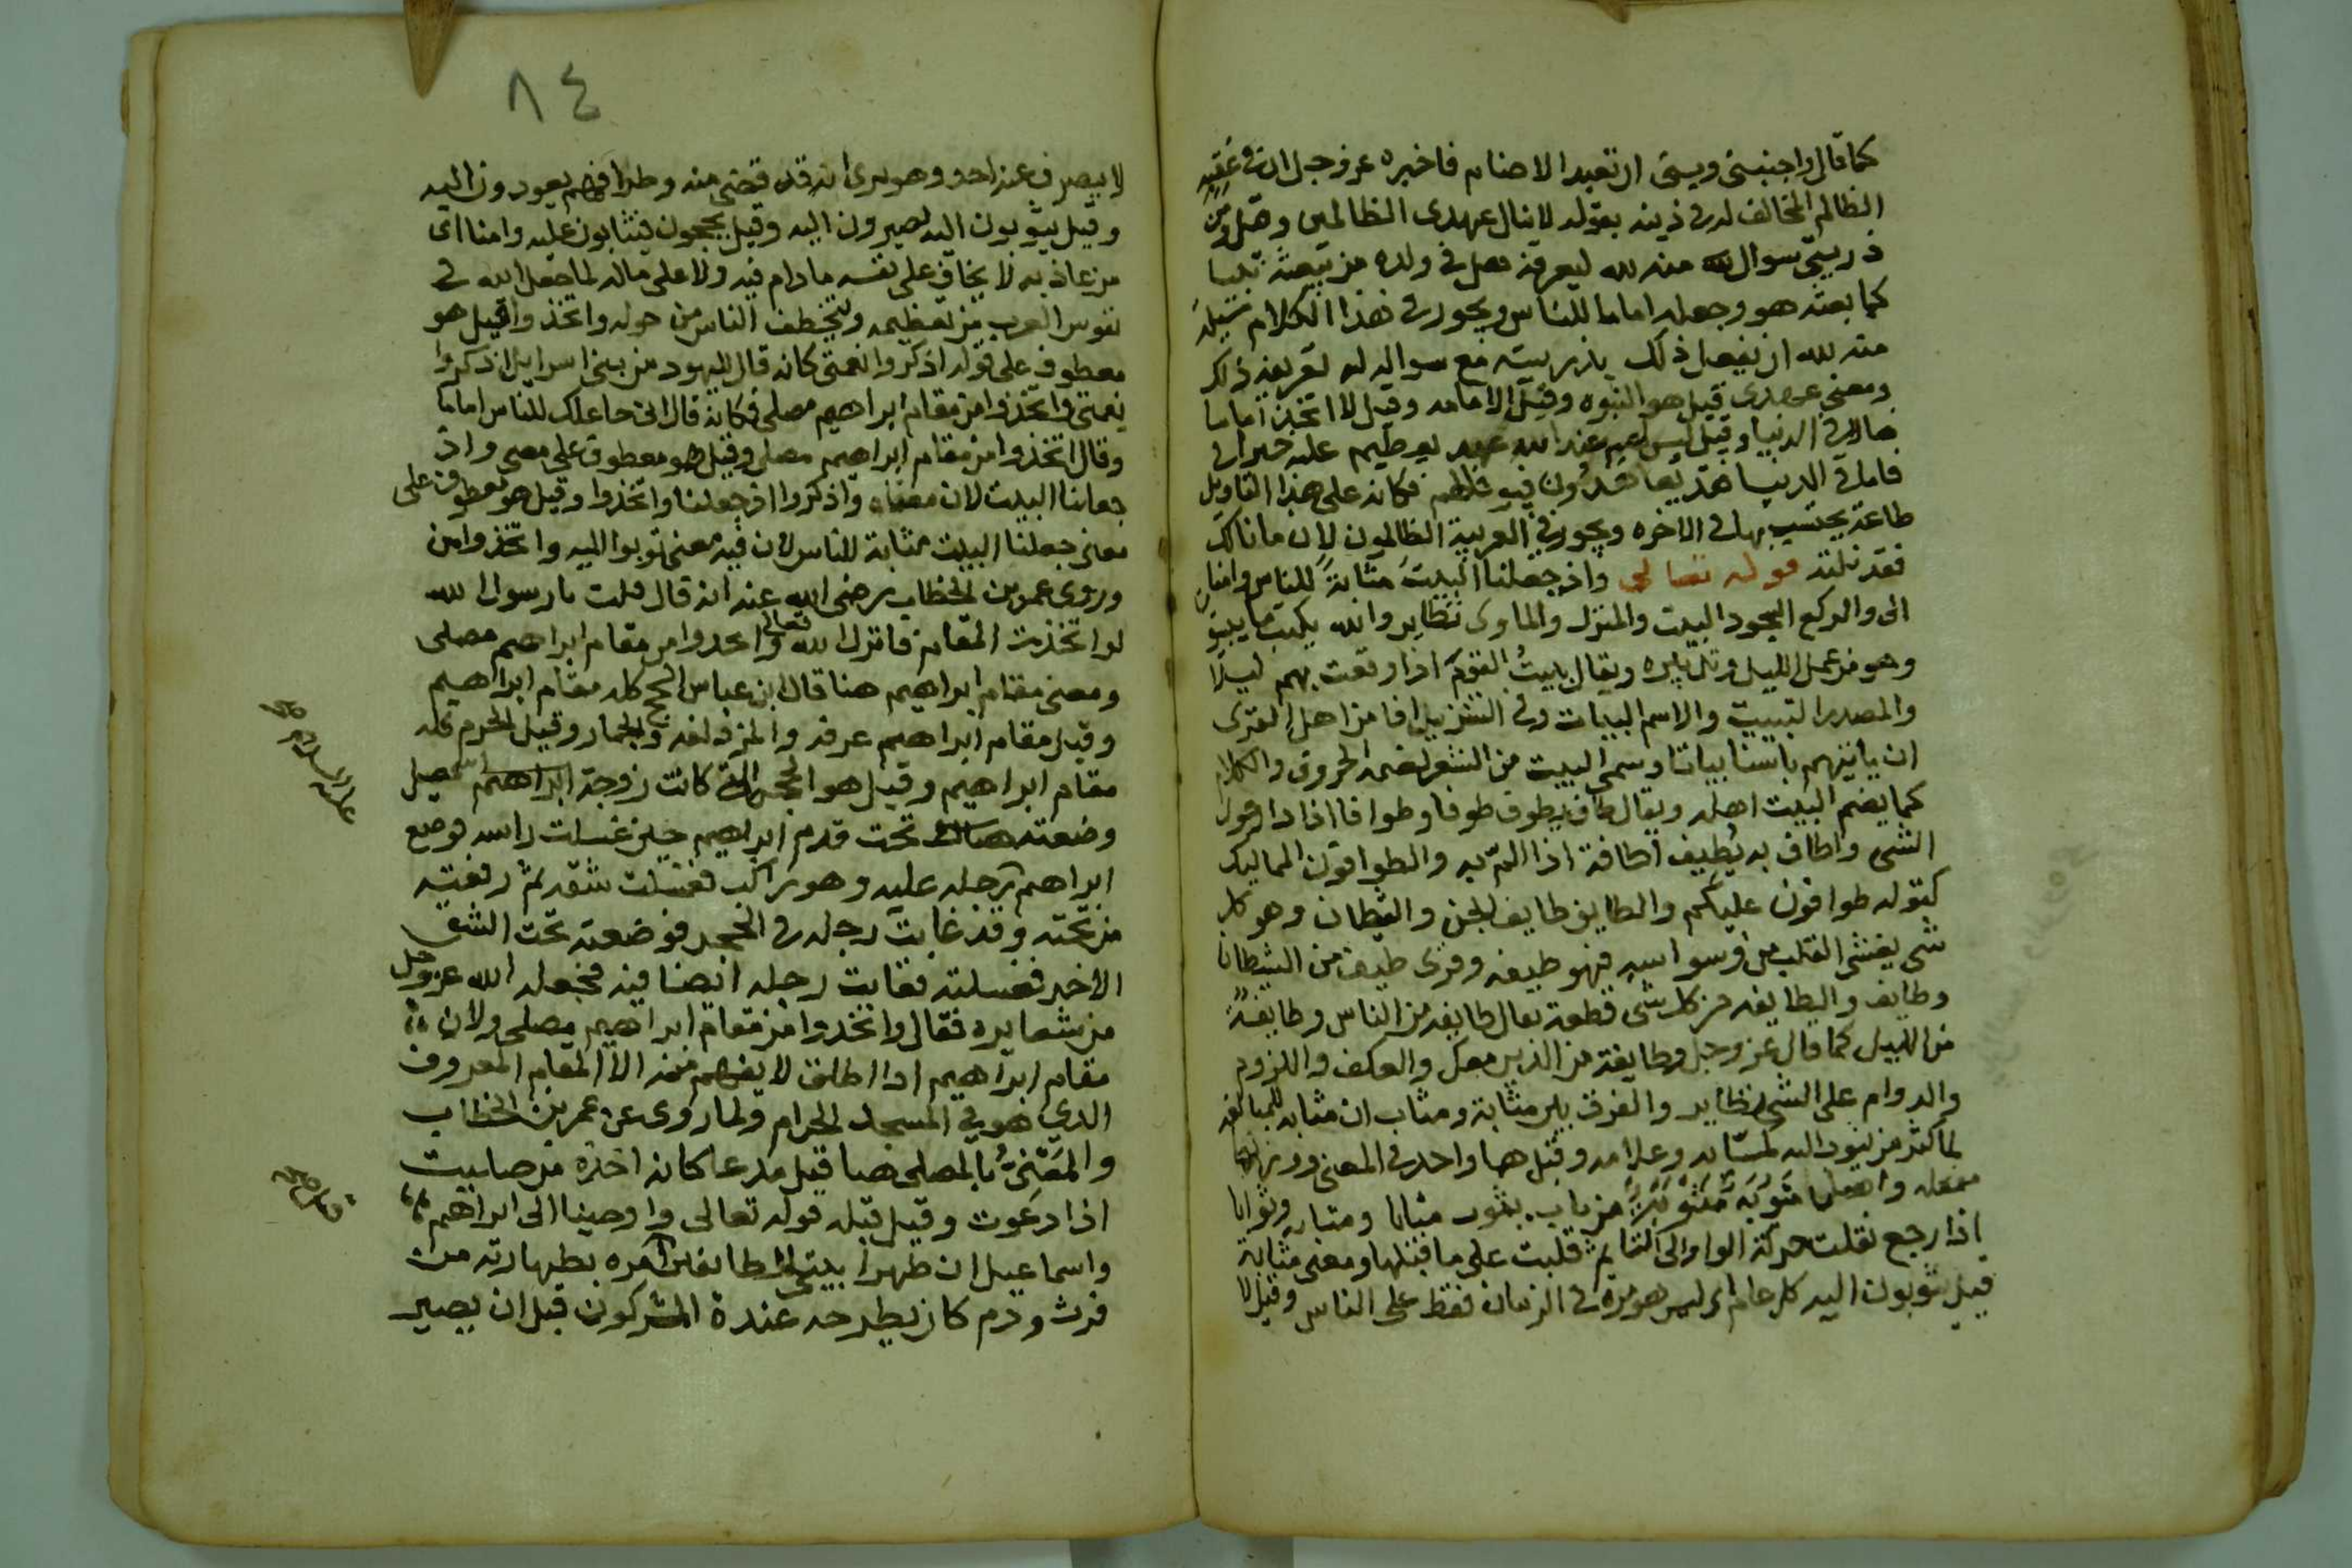 كما قال واجنبني وبني ان نعبد الاصنام فاخبره عز وجل ان في عقبه
الظالم المخالف له في دينه بقوله لا ينال عهدي الظالمين وقيل ومن
ذريتي سوال منه لله ليعرفه هل في ولده من يبعثه نبيا
كما بعثه هو وجعله اماما للناس ويجوز في هذا الكلام
منه لله ان يفعل ذلك بذريته مع سواله له تعريفه ذلك
ومعنى عهدي قيل هو النبوه وقيل الامامه وقيل لا اتخذ اماما
ضالا في الدنيا وقيل ليس لهم عند الله عهد يعطيهم عليه خيرا في
فاما في الدنيا فقد فكانه على هذا التاويل
طاعة يحتسب بها في الاخره ويجوز في العربية الظالمون لان ما نالك
فقد نلته قوله تعالى واذ جعلنا البيت مثابة للناس وامنا
الى والركع السجود البيت والمنزل والماوى نظاير وانه يكتب ما يبيتو
وهو من عمل الليل ويقال بيت القوم اذا وقعت بهم ليلا
والمصدر التبييت والاسم البيات وفي التنزيل افامن اهل القرى
ان ياتيهم باسنا بياتا وسمي البيت من الشعر لضمه الحروف والكلام
كما يضم البيت اهله ويقال طاف يطوف طوفا وطوافا اذا دار حول
الشي واطاف به يطيف اطافة اذا الم به والطوافون المماليك
كقوله طوافون عليكم والطايف طايف الجن والشيطان وهو كل
شي يغشى القلب من وسواسه فهو طيفه وقرى طيف من الشيطان
وطايف والطايفه من كل شي قطعة يقال طايفه من الناس وطايفة
من الليل كما قال عز وجل وطايفة من الذين معك والعكف واللزوم
والدوام على الشي نظاير والفرق بين مثابة ومثاب ان مثابه للمبالغه
لما كثر من يثوب اليه وعلامه وقيل هما واحد في المعنى ووزنها
مفعله واصلها مثوبه من باب يثوب مثابا ومثابه وثوابا
اذا رجع نقلت حركة الواو الى الثا ثم قلبت على ما قبلها ومعنى مثابة
قيل يثوبون اليه كل عام اي ليس هو مرة في الزمان فقط على الناس وقيل لا
٨٤
لا ينصرف عنه احد وهو يرى انه قد قضى منه وطرا فهم يعودون اليه
وقيل يثوبون اليه يصيرون اليه وقيل يحجون فيثابون عليه وامنا اي
من عاذ به لا يخاف على نفسه ما دام فيه ولا على ماله لما جعل الله في
نفوس العرب من تعظيمه ويتخطف الناس من حوله واتخذوا قيل هو
معطوف على قوله اذكروا نعمتي كانه قال لليهود من بني اسرايل اذكروا
نعمتي واتخذوا من مقام ابراهيم مصلى فكانه قال اني جاعلك للناس اماما
وقال اتخذوا من مقام ابراهيم مصلى وقيل هو معطوف على معنى واذ
جعلنا البيت لان معناه واذكروا اذ جعلنا واتخذوا وقيل هو معطوف على
معنى جعلنا البيت مثابة للناس لان فيه معنى ثوبوا اليه واتخذوا من
وروى عمر بن الخطاب رضي الله عنه انه قال قلت يا رسول الله
لو اتخذت المقام فانزل الله تعالى واتخذوا من مقام ابراهيم مصلى
ومعنى مقام ابراهيم هنا قال ابن عباس الحج كله مقام ابراهيم
وقيل مقام ابراهيم عرفه والمزدلفه والجمار وقيل الحرم كله
مقام ابراهيم وقيل هو الحجر الذي كانت زوجة ابراهيم اسمعيل
وضعته تحت قدم ابراهيم حين غسلت راسه فوضع
ابراهيم رجله عليه وهو راكب فغسلت شقه ثم رفعته
من تحته وقد غابت رجله في الحجر فوضعته تحت الشق
الاخر فغسلته فغابت رجله ايضا فيه فجعله الله عز وجل
من شعايره فقال واتخذوا من مقام ابراهيم مصلى ولان
مقام ابراهيم اذا اطلق لا يفهم منه الا المقام المعروف
الذي هو في المسجد الحرام ولما روى عن عمر بن الخطاب
والمعنى بالمصلى هنا قيل مدعا كانه اخذه من صليت
اذا دعوت وقيل قبله قوله تعالى واوحينا الى ابراهيم
واسماعيل ان طهرا بيتي للطايفين امره بطهارته من
فرث ودم كان يطرحه عنده المشركون قبل ان يصير